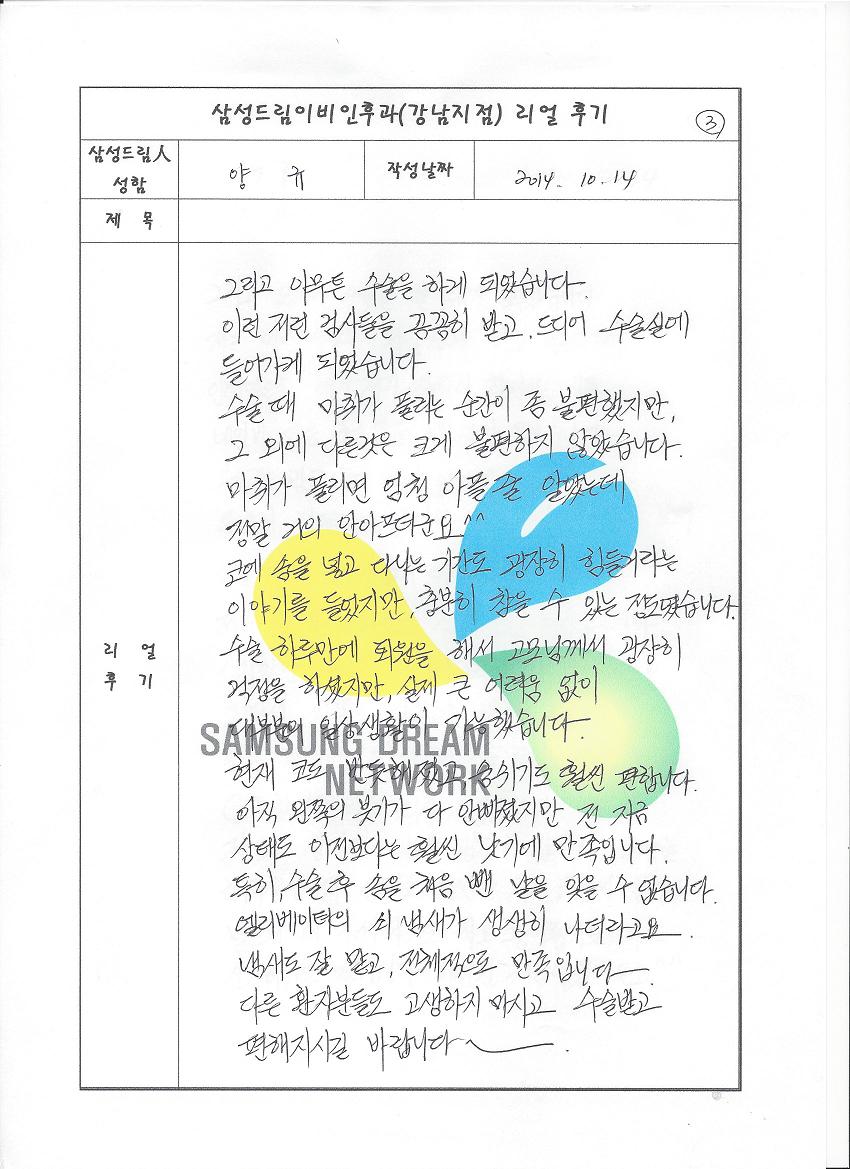 삼성드림이비인후과(강남지점) 리얼 후기
③
삼성드림人
성함
양 규
작성날짜
2014. 10. 14
제 목
리 얼
후 기
그리고 아무튼 수술을 하게 되었습니다.
이런 저런 검사들을 꼼꼼히 받고, 드디어 수술실에
들어가게 되었습니다.
수술 때 마취가 풀리는 순간이 좀 불편했지만,
그 외에 다른것은 크게 불편하지 않았습니다.
마취가 풀리면 엄청 아플 줄 알았는데
정말 거의 안아프더군요^^
코에 솜을 넣고 다니는 기간도 굉장히 힘들거라는
이야기를 들었지만, 충분히 참을 수 있는 정도였습니다.
수술 하루만에 퇴원을 해서 고모님께서 굉장히
걱정을 하셨지만, 실제 큰 어려움 없이
대부분의 일상생활이 가능했습니다.
SAMSUNG DREAM
NETWORK
현재 코도 반듯해졌고 숨쉬기도 훨씬 편합니다.
아직 왼쪽의 붓기가 다 안빠졌지만 전 지금
상태도 이전보다는 훨씬 낫기에 만족입니다.
특히, 수술 후 솜을 처음 뺀 날을 잊을 수 없습니다.
엘리베이터의 쇠 냄새가 생생히 나더라고요.
냄새도 잘 맡고, 전체적으로 만족입니다.
다른 환자분들도 고생하지 마시고 수술받고
편해지시길 바랍니다~